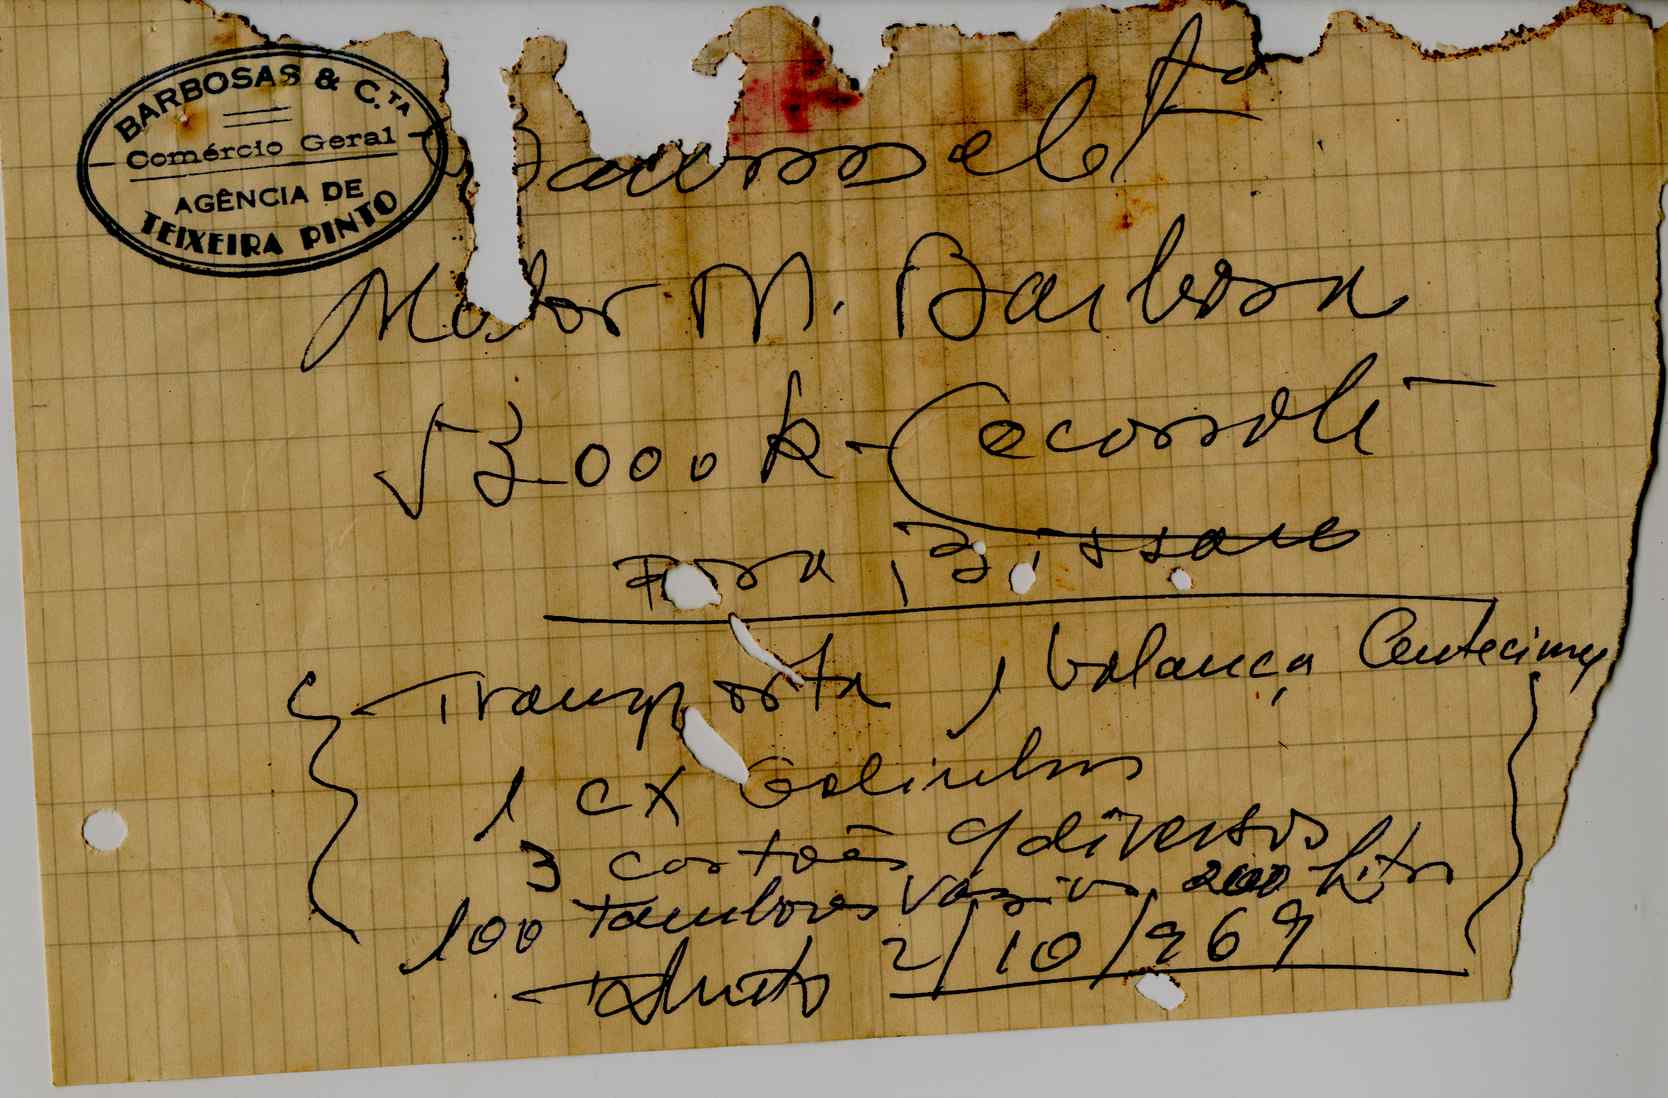 BARBOSAS & C.TA
Comércio Geral
AGÊNCIA DE
TEIXEIRA PINTO
Motor M. Barbosa
3000 k -
Para Bissau
Transporta 1 balança Centecimal
1 cx Galinhas
3 cartões c/ diversos
100 tambores vazios 200 Litros
2/10/969